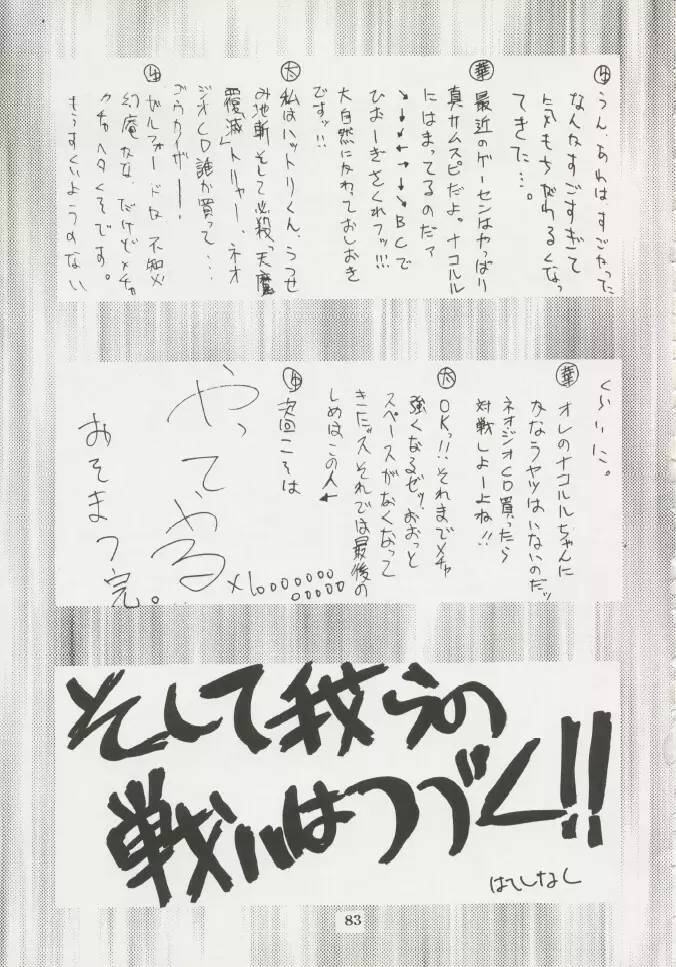 牛 うん、あれは、すごかった
なんかすごすぎて
気もちがわるくなっ
てきた…。
華 最近のゲーセンはやっぱり
真サムスピだよ。ナコルル
にはまってるのだァ
↘↓↓↙←→↓↘BCで
ひおーぎさくれフッ!!!
大自然にかわっておしおき
ですッ!!
大 私はハットリくん、うつせ
み地斬そして必殺「天魔
覆滅」トリャー、ネオ
ジオCD誰か買って…
ゴウカイザー――!
牛 ガルフォードな 不知火
幻庵なな、だけどメチャ
クチャヘタくそです。
もうすくいようのない
くらいに。
華 オレのナコルルちゃんに
かなうヤツはいないのだッ
ネオジオCD買ったら
対戦しよーよね!!
大 OKっ!!それまでメチャ
強くなるゼッ、おおっと
スペースがなくなって
きたッスそれでは最後の
しめはこの人←
牛 次回こそは
やってやる×10000000
00000
おそまつ完。
そして我らの
戦いはつづく!!
はてしなく
83